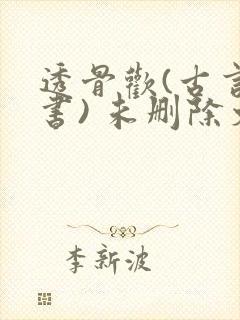 透骨歡(古言
書)未刪除
李新波